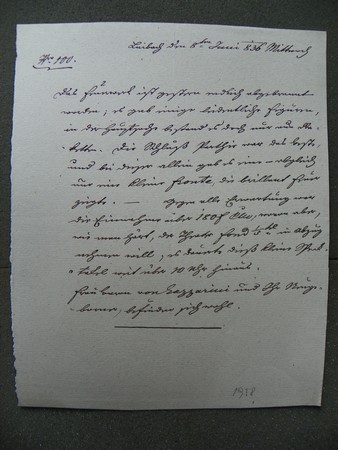 Laibach den 8ten Juni 836 Mittwoch
No 100.
Das Feuerwerk ist gestern endlich abgebrannt
worden, es gab einige Figuren,
in der Hauptsache bestand es doch nur aus Ra-
ketten. Die Schluß Parthie war das beste,
und bei dieser allein gab es eine – obgleich
nur eine kleine Fronte, die brillant
zeigte. — Gegen alle Erwartung war
die Einnahme über 180 f wovon aber,
wie man hört, der Theater fond in Abzug
nehmen will, es dauerte dieß kleine Spek-
takel mit über 10 Uhr hinaus.
Frau von und Ihr Neuge-
borner, befinden sich wohl.